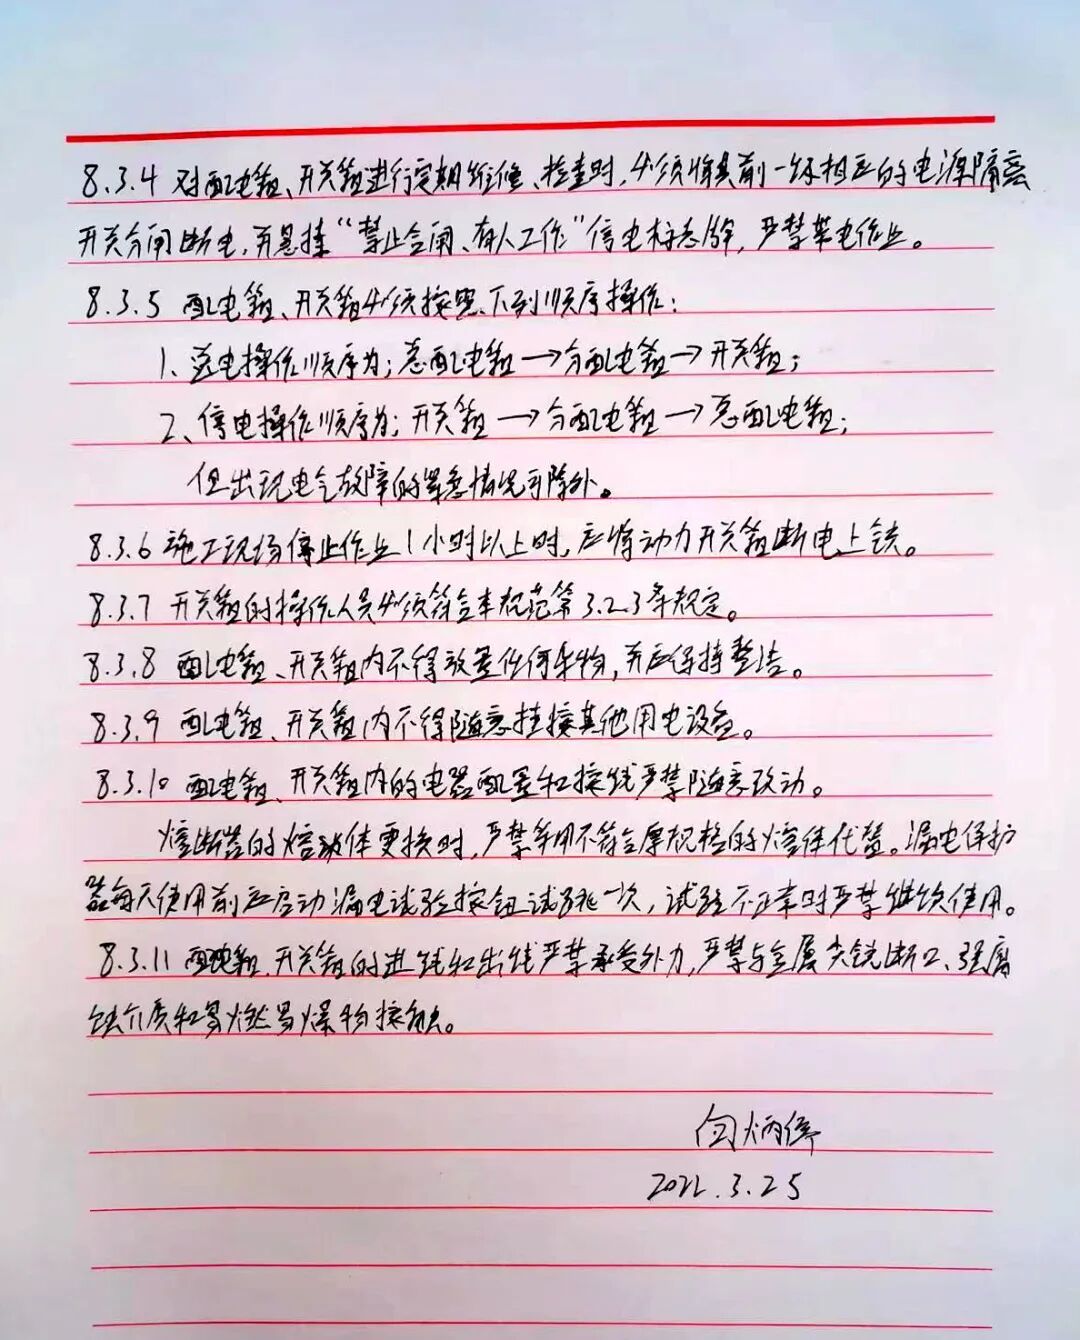 8.3.4 对配电箱、开关箱进行定期维修、检查时,必须将其前一级相应的电源隔离
开关分闸断电,并悬挂“禁止合闸、有人工作”停电标志牌,严禁带电作业。
8.3.5 配电箱、开关箱必须按照下列顺序操作:
1、送电操作顺序为:总配电箱→分配电箱→开关箱;
2、停电操作顺序为:开关箱→分配电箱→总配电箱;
但出现电气故障的紧急情况可除外。
8.3.6 施工现场停止作业1小时以上时,应将动力开关箱断电上锁。
8.3.7 开关箱的操作人员必须符合本规范第3.2.3条规定。
8.3.8 配电箱、开关箱内不得放置任何杂物,并应保持整洁。
8.3.9 配电箱、开关箱内不得随意挂接其他用电设备。
8.3.10 配电箱、开关箱内的电器配置和接线严禁随意改动。
熔断器的熔体更换时,严禁采用不符合原规格的熔体代替。漏电保护
器每天使用前应启动漏电试验按钮试跳一次,试验不正常时严禁继续使用。
8.3.11 配电箱、开关箱的进线和出线严禁承受外力,严禁与金属尖锐断口、强腐
蚀介质和易燃易爆物接触。
2022.3.25